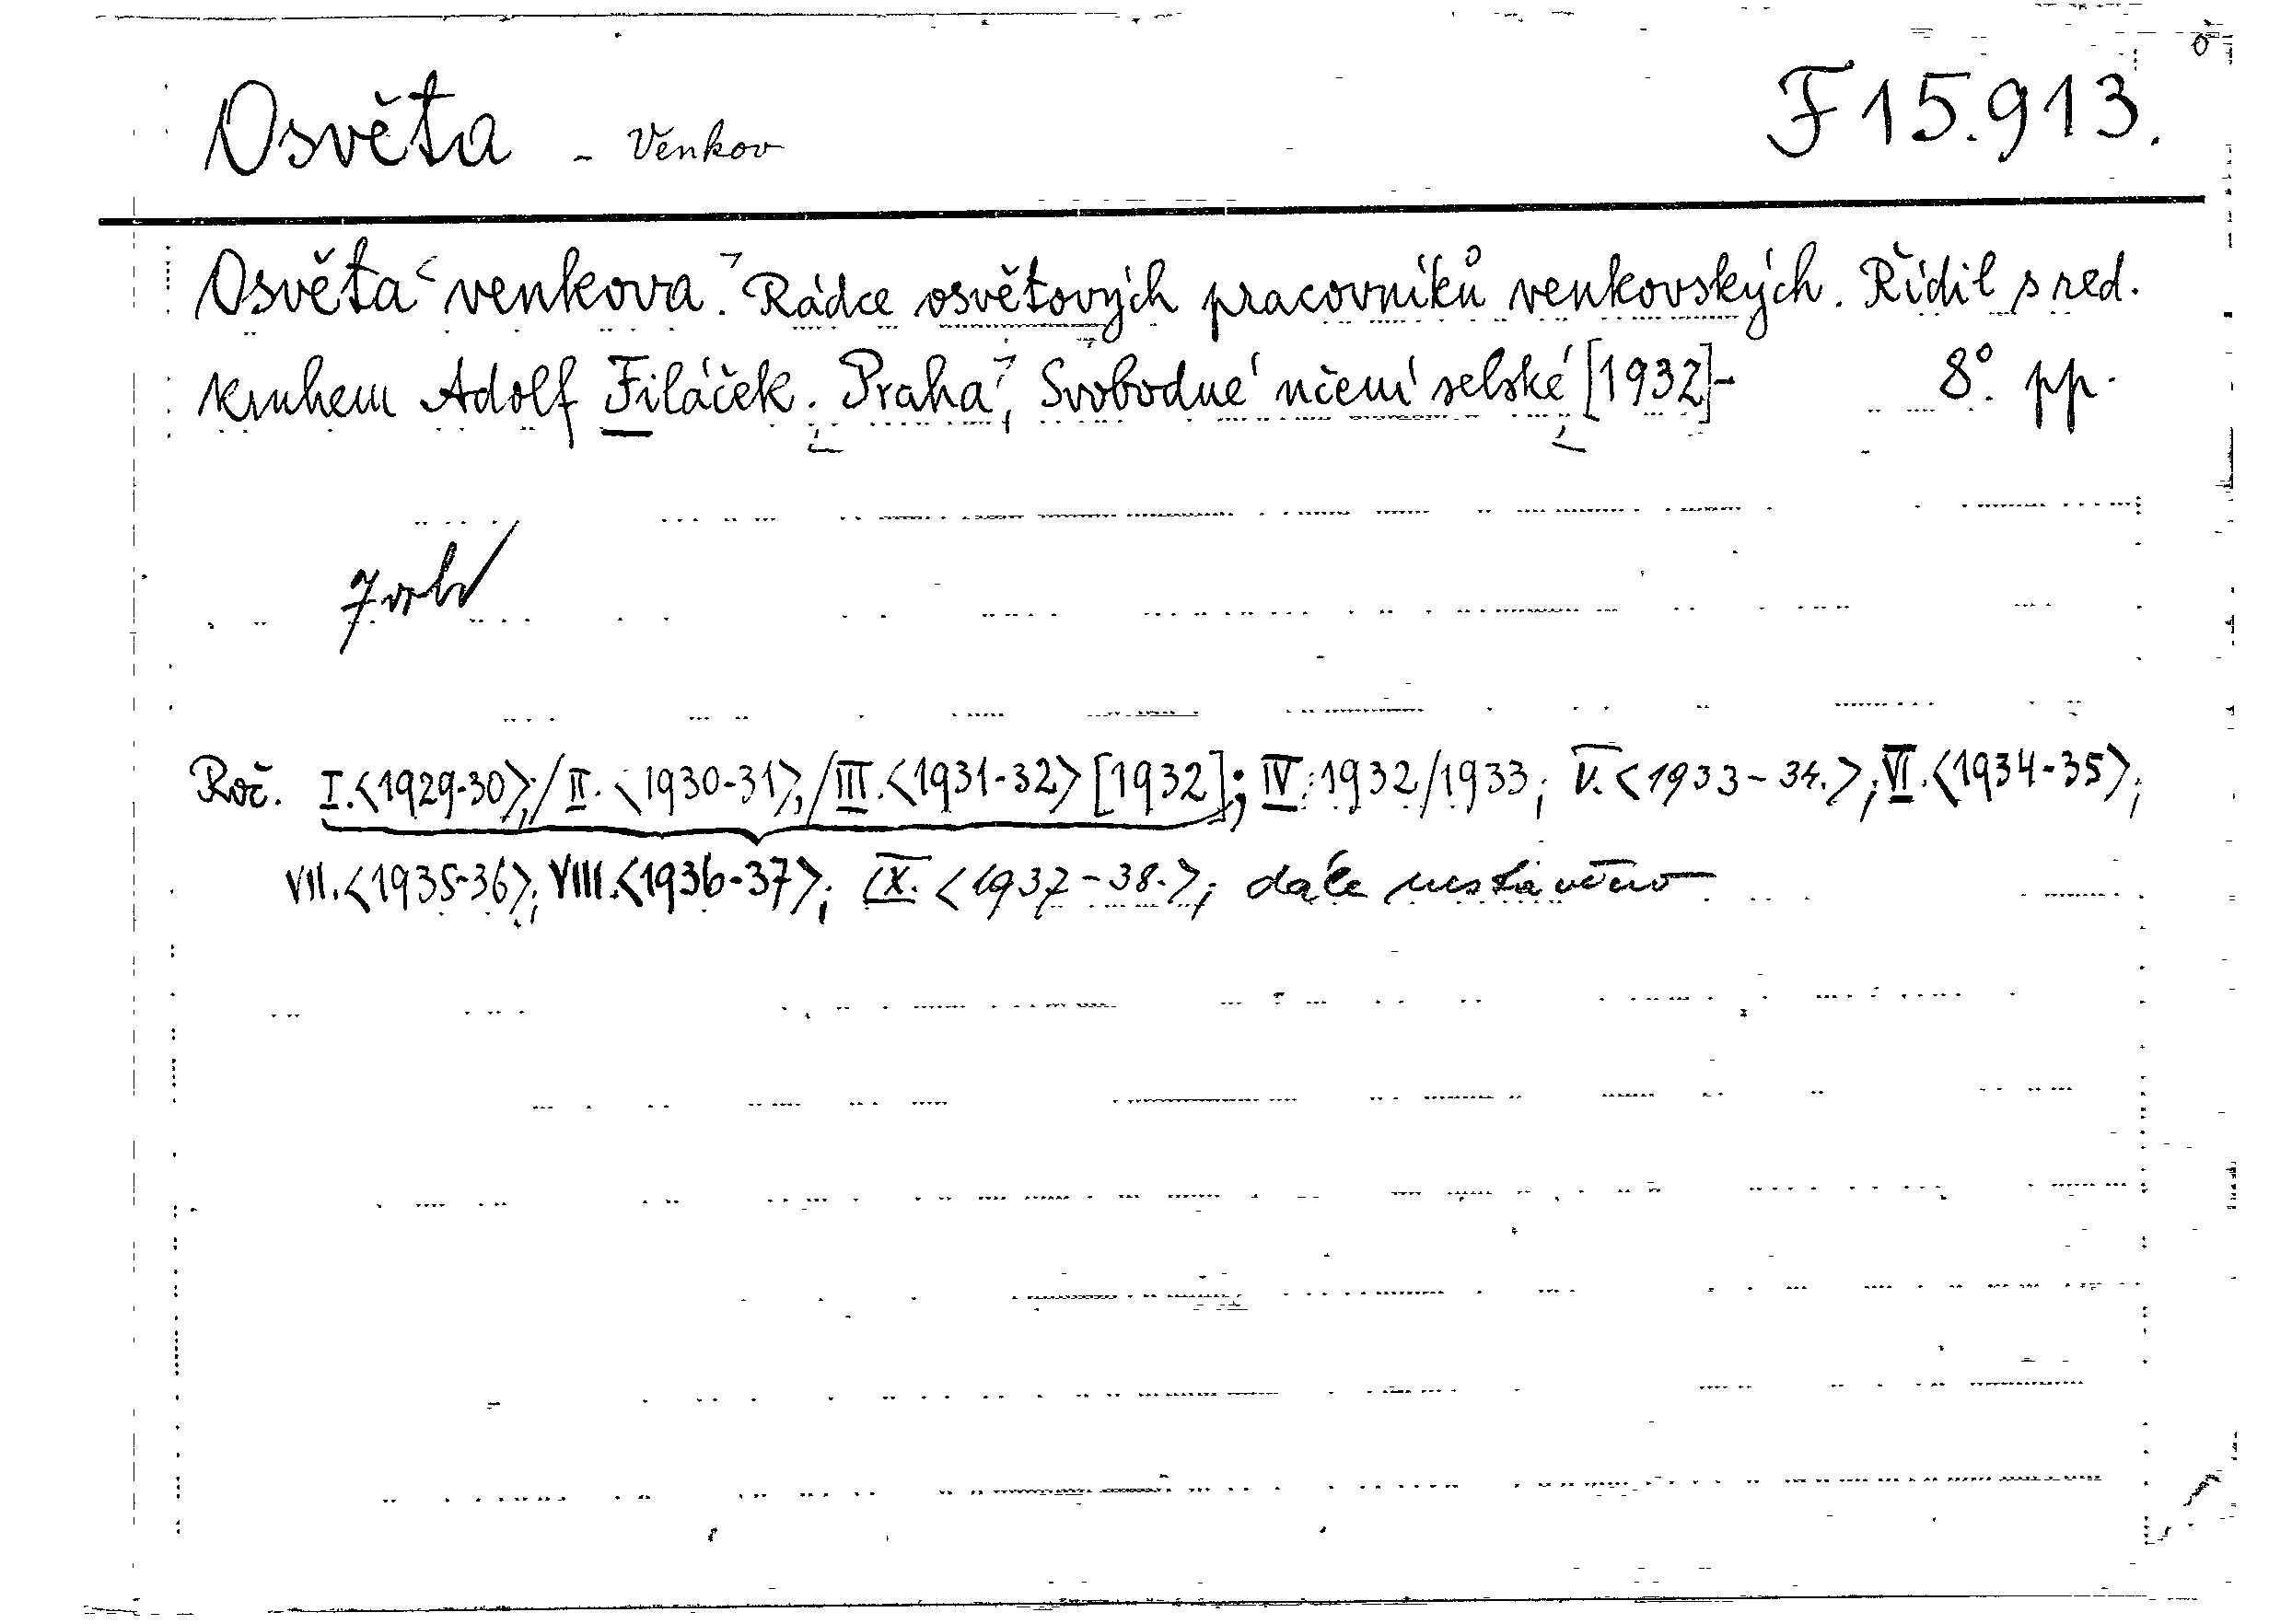 Osvěta - Venkov F 15.913.
Osvěta < venkova.> Rádce osvětových pracovníků venkovských. Řídil s red.
kruhem Adolf Filáček. Praha, Svobodné učení selské [1932]- 8° pp.
Roč. I.<1929-30>;/II.<1930-31>;/III.<1931-32>[1932]; IV: 1932/1933; V.<1933-34.>; VI.<1934-35>;
VII.<1935-36>; VIII.<1936-37>; IX.<1937-38.>; dále nestávěno